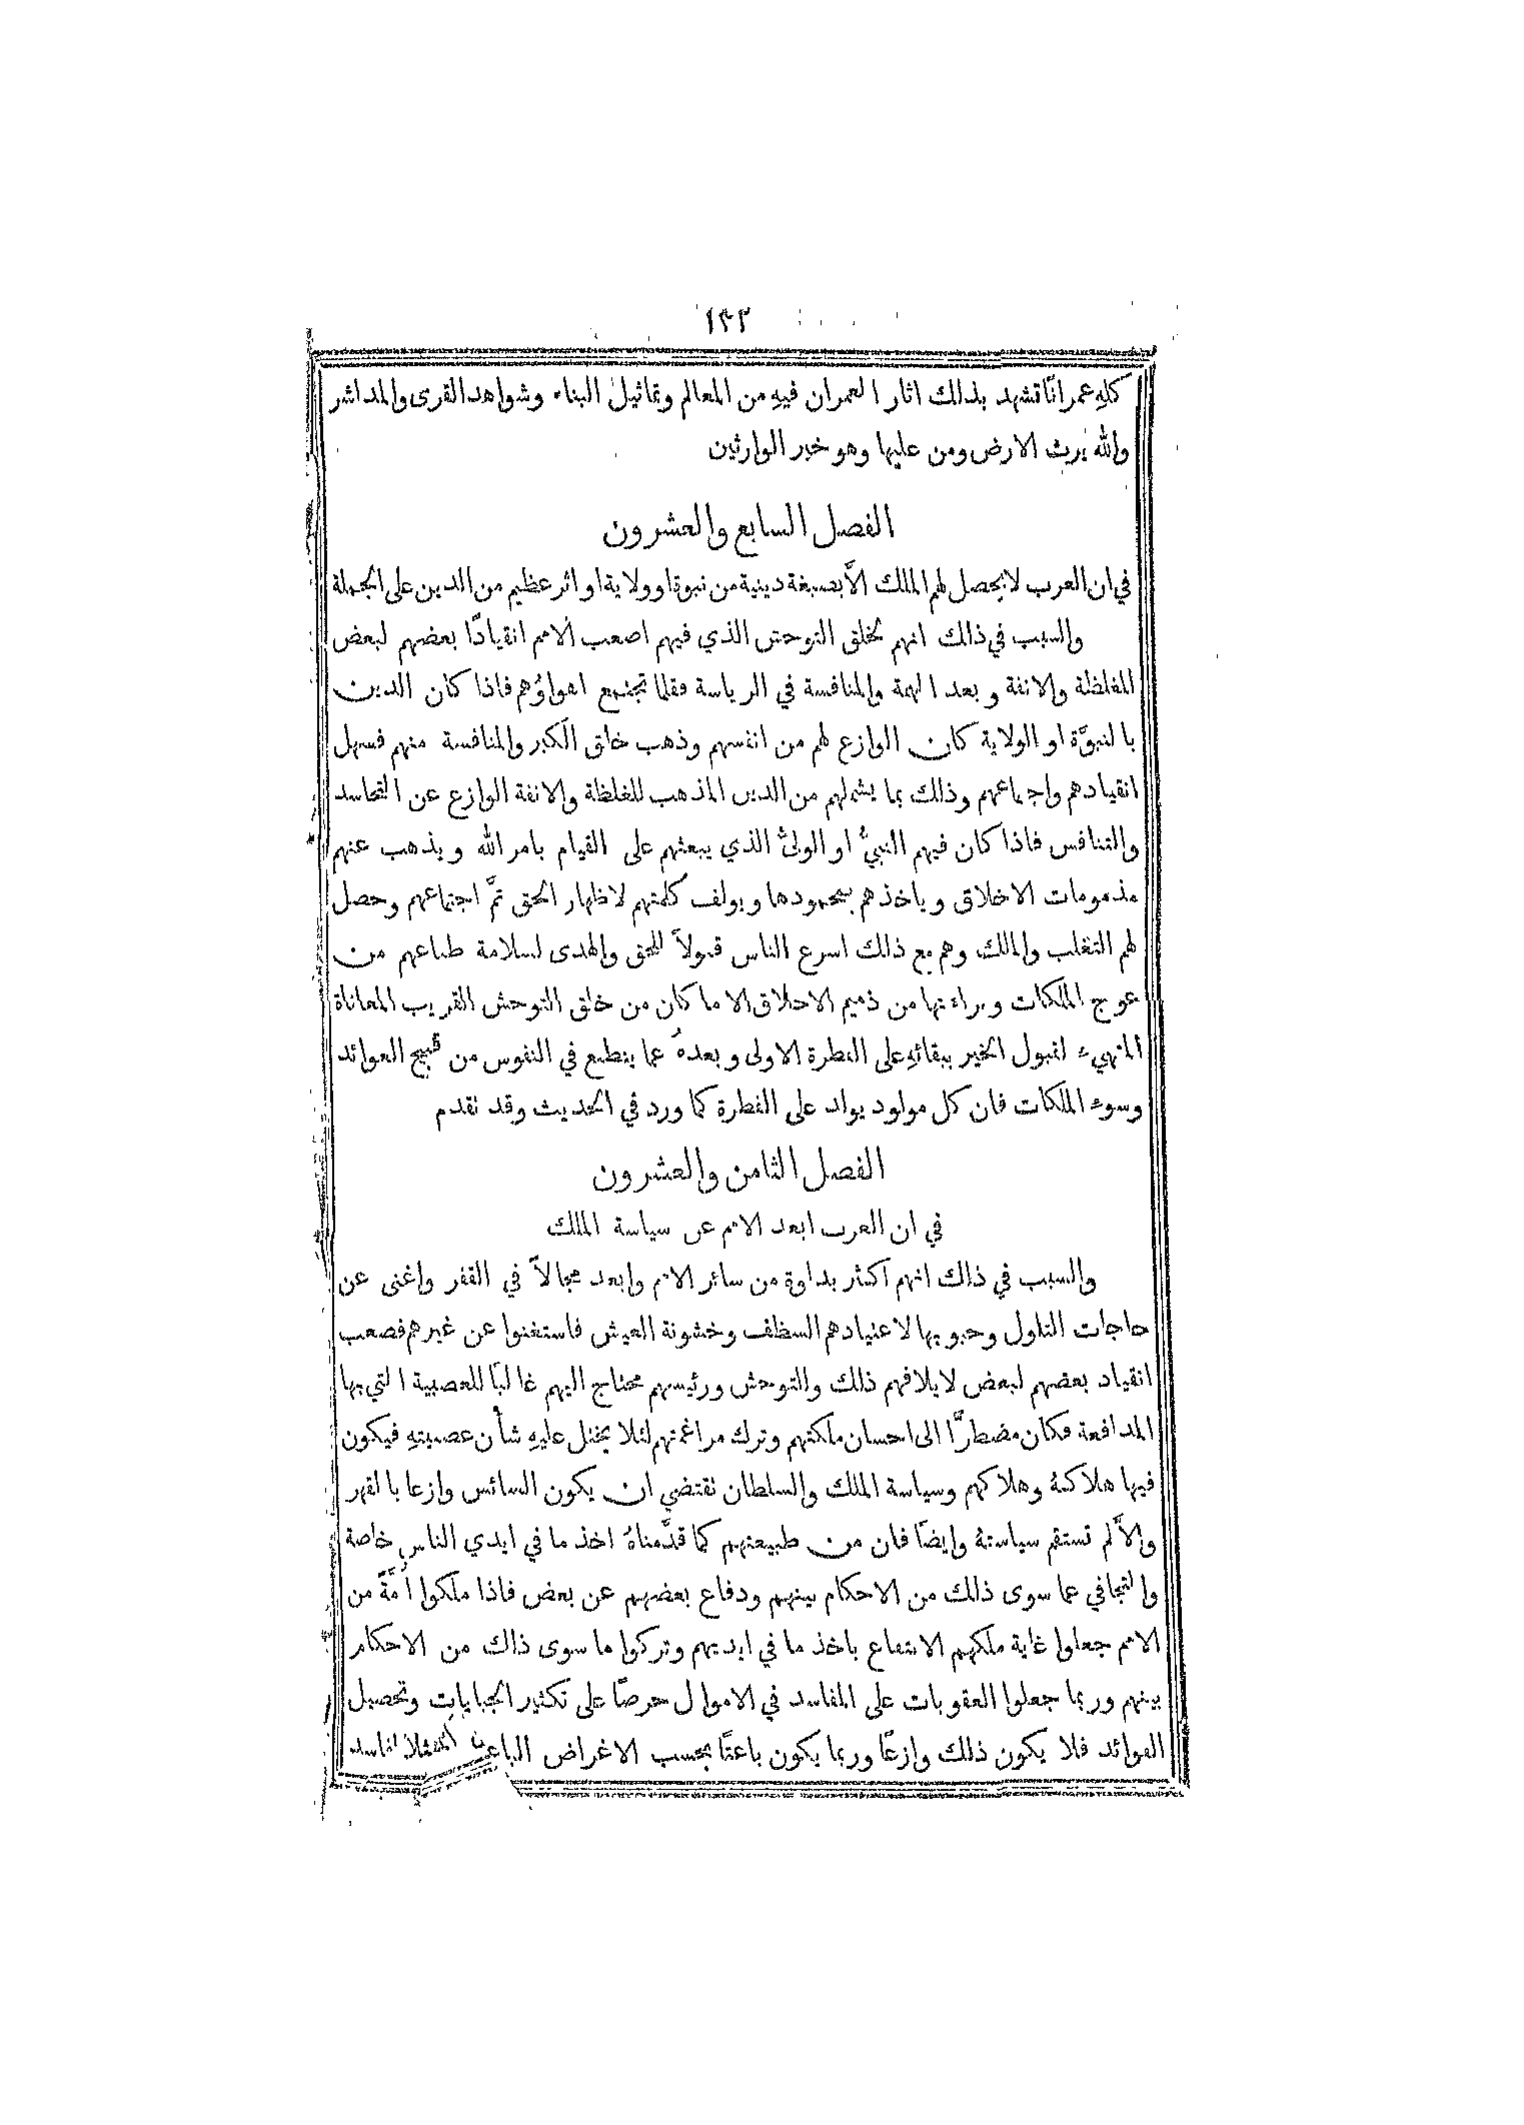 ١٣٣
كلهِ عمرانًا تشهد بذلك اثار العمران فيهِ من المعالم وتماثيل البناء وشواهد القرى والمداشر
والله يرث الارض ومن عليها وهو خير الوارثين
الفصل السابع والعشرون
في ان العرب لا يحصل لهم الملك الَّا بصبغة دينية من نبوة او ولاية او اثر عظيم من الدين على الجملة
والسبب في ذلك انهم لخلق التوحش الذي فيهم اصعب الامم انقيادًا بعضهم لبعض
للغلظة والانفة وبعد الهمة والمنافسة في الرياسة فقلما تجتمع اهواؤهم فاذا كان الدين
بالنبوَّة او الولاية كان الوازع لهم من انفسهم وذهب خلق الكبر والمنافسة منهم فسهل
انقيادهم واجتماعهم وذلك بما يشملهم من الدين المذهب للغلظة والانفة الوازع عن التحاسد
والتنافس فاذا كان فيهم النبيُّ او الوليُّ الذي يبعثهم على القيام بامر الله ويذهب عنهم
مذمومات الاخلاق وياخذهم بمحمودها ويولف كلمتهم لاظهار الحق تمَّ اجتماعهم وحصل
لهم التغلب والملك وهم مع ذلك اسرع الناس قبولاً للحق والهدى لسلامة طباعهم من
عوج الملكات وبراءتها من ذميم الاخلاق الا ما كان من خلق التوحش القريب المعاناة
المتهيء لقبول الخير ببقائهِ على الفطرة الاولى وبعدهُ عما ينطبع في النفوس من قبيح العوائد
وسوء الملكات فان كل مولود يولد على الفطرة كما ورد في الحديث وقد تقدم
الفصل الثامن والعشرون
في ان العرب ابعد الامم عن سياسة الملك
والسبب في ذلك انهم اكثر بداوة من سائر الامم وابعد مجالاً في القفر واغنى عن
حاجات التلول وحبوبها لاعتيادهم الشظف وخشونة العيش فاستغنوا عن غيرهم فصعب
انقياد بعضهم لبعض لايلافهم ذلك والتوحش ورئيسهم محتاج اليهم غالبًا للعصبية التي بها
المدافعة فكان مضطرًّا الى احسان ملكتهم وترك مراغمتهم لئلا يختل عليهِ شأن عصبيتهِ فيكون
فيها هلاكهُ وهلاكهم وسياسة الملك والسلطان تقتضي ان يكون السائس وازعا بالقهر
والَّا لم تستقم سياستهُ وايضًا فان من طبيعتهم كما قدَّمناهُ اخذ ما في ايدي الناس خاصة
والتجافي عما سوى ذلك من الاحكام بينهم ودفاع بعضهم عن بعض فاذا ملكوا أُمَّةً من
الامم جعلوا غاية ملكهم الانتفاع باخذ ما في ايديهم وتركوا ما سوى ذلك من الاحكام
بينهم وربما جعلوا العقوبات على المفاسد في الاموال حرصًا على تكثير الجبايات وتحصيل
الفوائد فلا يكون ذلك وازعًا وربما يكون باعثًا بحسب الاغراض